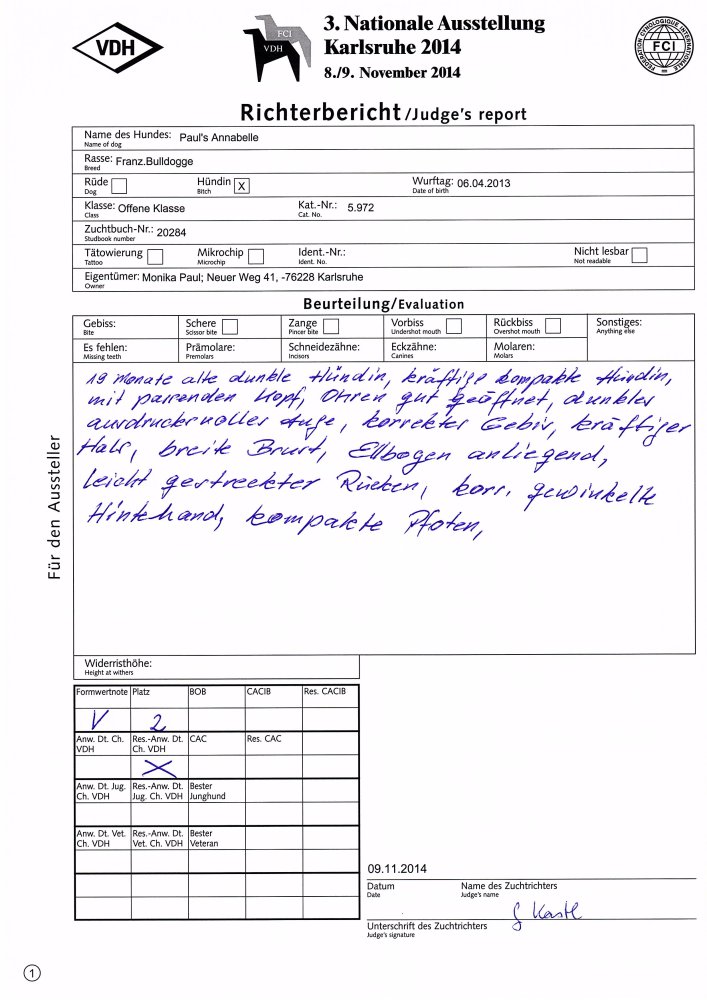 VDH
FCI
VDH
3. Nationale Ausstellung
Karlsruhe 2014
8./9. November 2014
FEDERATION CYNOLOGIQUE INTERNATIONALE
FCI
Richterbericht/Judge's report
Name des Hundes: Paul's Annabelle
Name of dog
Rasse: Franz.Bulldogge
Breed
Rüde Hündin X Wurftag: 06.04.2013
Dog Bitch Date of birth
Klasse: Offene Klasse Kat.-Nr.: 5.972
Class Cat. No.
Zuchtbuch-Nr.: 20284
Studbook number
Tätowierung Mikrochip Ident.-Nr.: Nicht lesbar
Tattoo Microchip Ident. No. Not readable
Eigentümer: Monika Paul; Neuer Weg 41, -76228 Karlsruhe
Owner
Beurteilung/Evaluation
Gebiss: Schere Zange Vorbiss Rückbiss Sonstiges:
Bite Scissor bite Pincer bite Undershot mouth Overshot mouth Anything else
Es fehlen: Prämolare: Schneidezähne: Eckzähne: Molaren:
Missing teeth Premolars Incisors Canines Molars
19 Monate alte dunkle Hündin, kräftige kompakte Hündin,
mit passenden Kopf, Ohren gut geöffnet, dunkles
ausdrucksvolles Auge, korrektes Gebiß, kräftiger
Hals, breite Brust, Ellbogen anliegend,
leicht gestreckter Rücken, korr. gewinkelte
Hinterhand, kompakte Pfoten,
Für den Aussteller
Widerristhöhe:
Height at withers
Formwertnote Platz BOB CACIB Res. CACIB
V 2
Anw. Dt. Ch. Res.-Anw. Dt. CAC Res. CAC
VDH Ch. VDH
X
Anw. Dt. Jug. Res.-Anw. Dt. Bester
Ch. VDH Jug. Ch. VDH Junghund
Anw. Dt. Vet. Res.-Anw. Dt. Bester
Ch. VDH Vet. Ch. VDH Veteran
09.11.2014
Datum Name des Zuchtrichters
Date Judge's name
Unterschrift des Zuchtrichters
Judge's signature
1